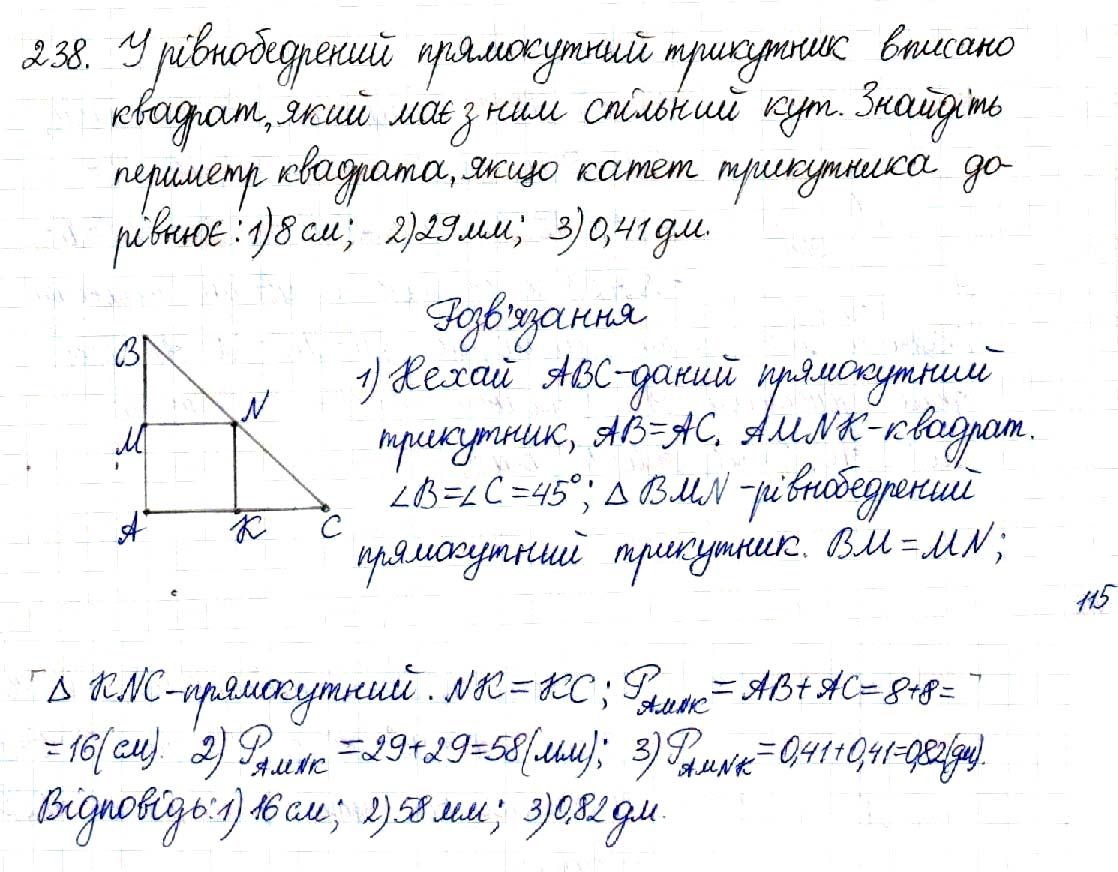 238. У рівнобедрений прямокутний трикутник вписано
квадрат, який має з ним спільний кут. Знайдіть
периметр квадрата, якщо катет трикутника до-
рівнює: 1) 8 см; 2) 29 мм; 3) 0,41 дм.
Розв'язання
B
M
N
A
K
C
1) Нехай ABC-даний прямокутний
трикутник, AB=AC, AMNK-квадрат.
∠B=∠C=45°; △ BMN-рівнобедрений
прямокутний трикутник. BM=MN;
115
△ KNC-прямокутний. NK=KC; P_AMNK=AB+AC=8+8=
=16(см). 2) P_AMNK=29+29=58(мм); 3) P_AMNK=0,41+0,41=0,82(дм).
Відповідь: 1) 16 см; 2) 58 мм; 3) 0,82 дм.